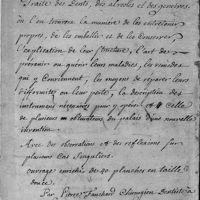 Traité des Dents, des alveoles et des gencives,
ou l'on trouvera la maniere de les entretenir
propres, de les embellir et de les Conserver
l'explication de leur structure, l'art de
prévenir ou guérir leurs maladies, les remèdes
qui y Conviennent, les moyens de reparer leurs
difformités ou leur perte, la description des
instrumens necessaires pour y opérer et Celle
de plusieurs obturateurs du palais d'une nouvelle
Invention.
Avec des observations et des reflexions sur
plusieurs Cas Singuliers.
ouvrage enrichi de 40 planches en taille
douce.
Par Pierre Fauchard Chirurgien Dentiste a